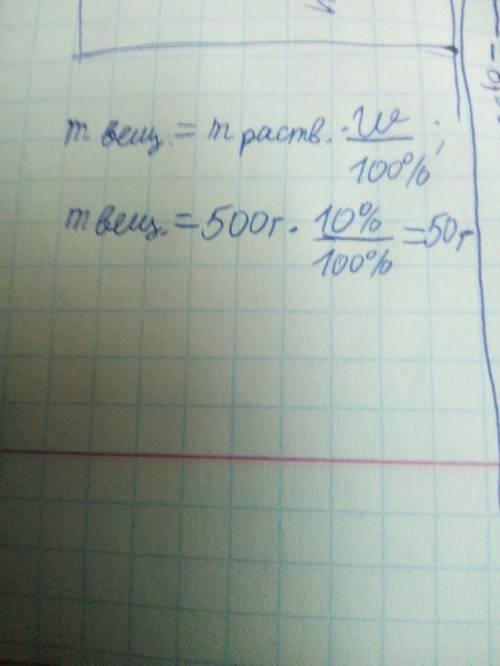 m вещ. = m раств. · w/100%;
m вещ. = 500г · 10%/100% = 50г